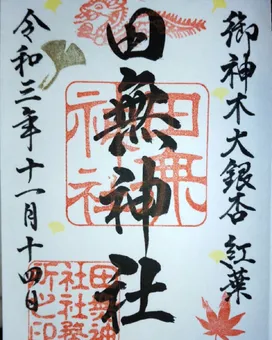 御神木大銀杏 紅葉
田無神社
令和三年十一月十四日
田無神社
田無神
社社務
所之印